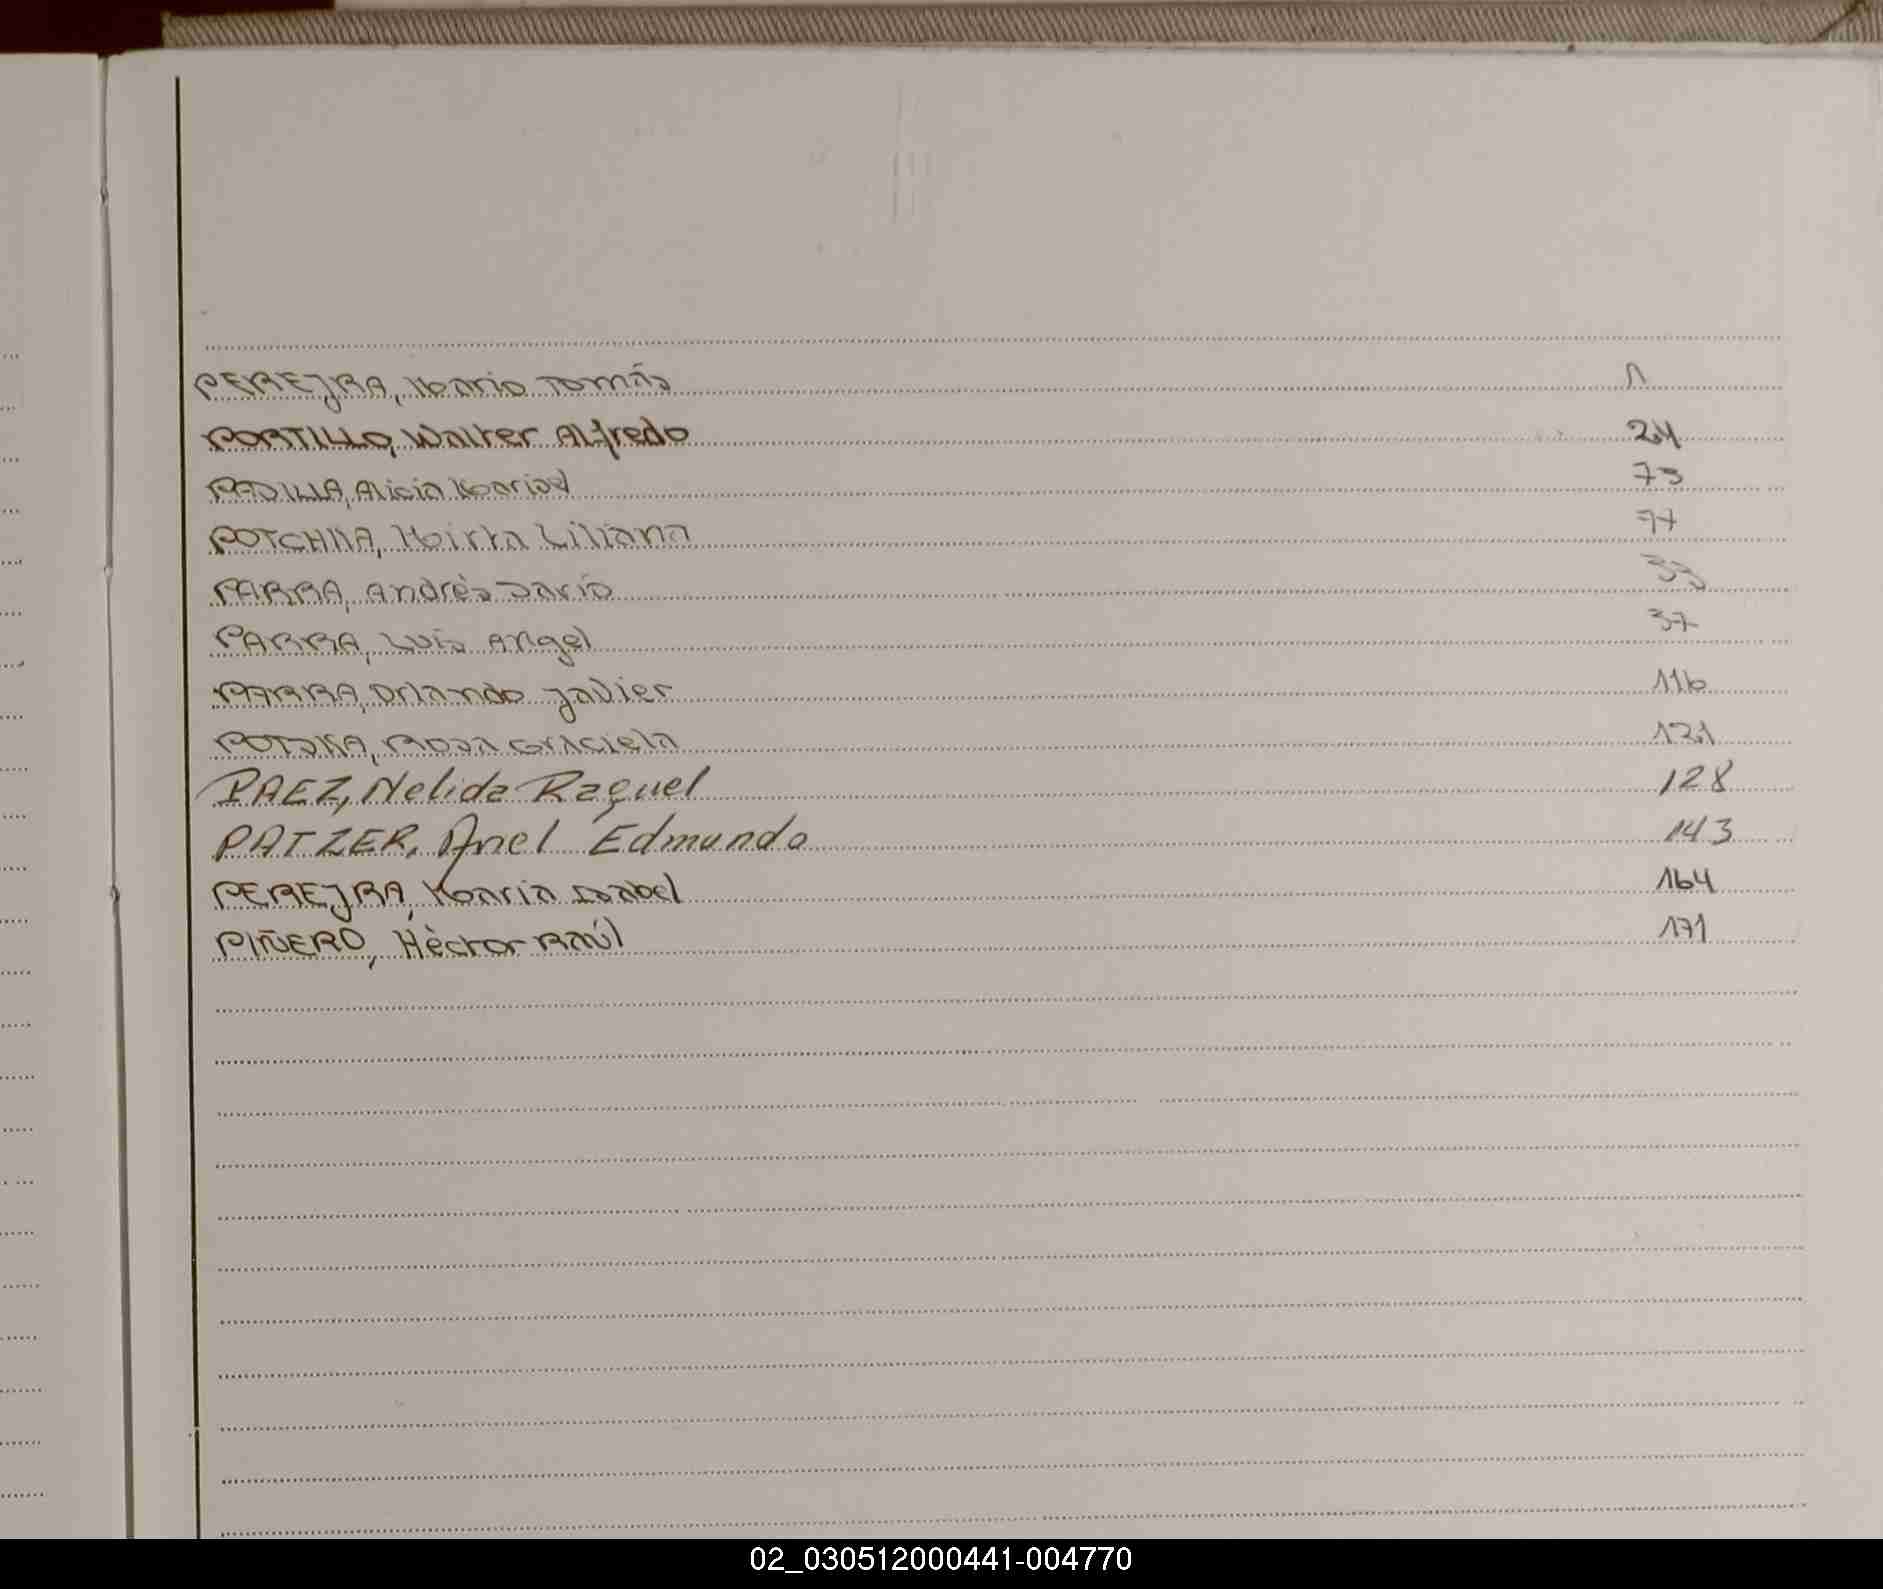 PEREJRA, Mario Tomás 1
PORTILLO, Walter Alfredo 24
PADILLA, Alicia Marisel 73
POTCHNA, Mirta Liliana 77
PARRA, Andrés Darío 33
PARRA, Luis Angel 37
PARRA, Orlando Javier 116
Rosa Graciela 121
PAEZ, Nelida Raquel 128
PATZER, Ariel Edmundo 143
PEREJRA, Maria Isabel 164
PIÑERO, Héctor Raúl 171
02_030512000441-004770